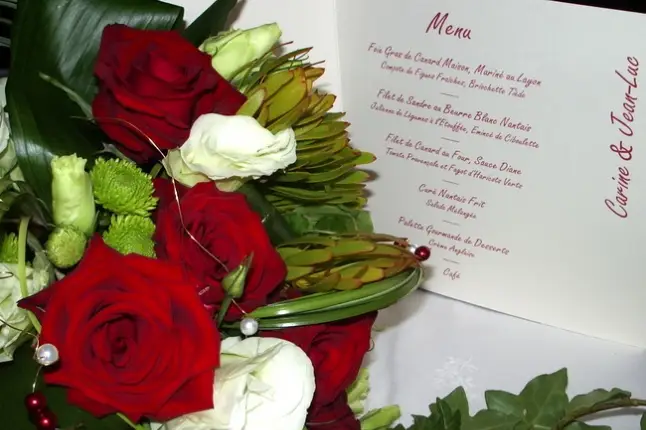 Menu
Foie Gras de Canard Maison, Mariné au Layon
Compote de Figues Fraîches, Briochette Tiède
Filet de Sandre au Beurre Blanc Nantais
Julienne de Légumes à l'Etouffée, Emincé de Ciboulette
Filet de Canard au Four, Sauce Diane
Tomate Provençale et Fagot d'Haricots Verts
Curé Nantais Frit
Salade Mélangée
Palette Gourmande de Desserts
Crème Anglaise
Café
Carine & Jean-Luc